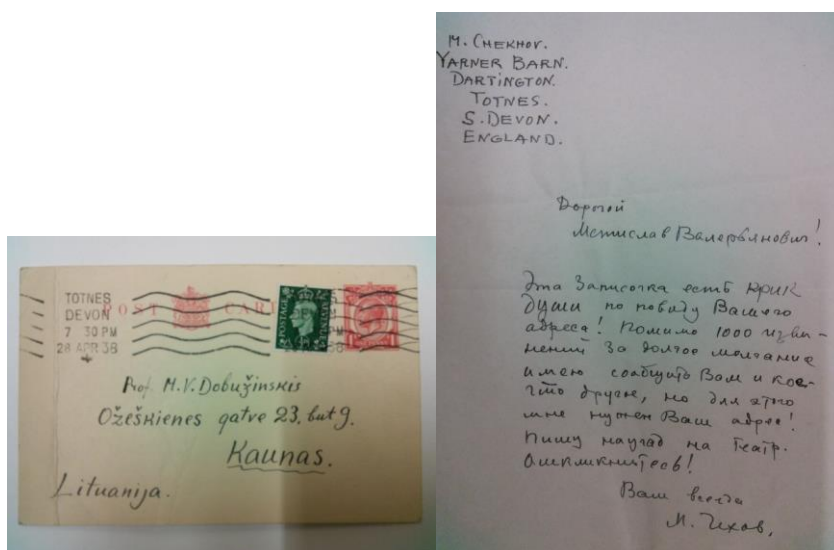 TOTNES
DEVON
7 30 PM
28 APR 38
POST CARD
POSTAGE
Prof M.V. Dobužinskis
Ožeškienes gatve 23, but 9.
Kaunas.
Lituanija.
M. CHEKHOV.
YARNER BARN.
DARTINGTON.
TOTNES.
S. DEVON.
ENGLAND.
Дорогой
Мстислав Валерьянович!
Эта записочка есть крик
души по поводу Вашего
адреса! Помимо 1000 изви-
нений за долгое молчание
имею сообщить Вам и кое-
что другое, но для этого
мне нужен Ваш адрес!
Пишу наугад на Театр.
Откликнитесь!
Ваш всегда
М. Чехов.